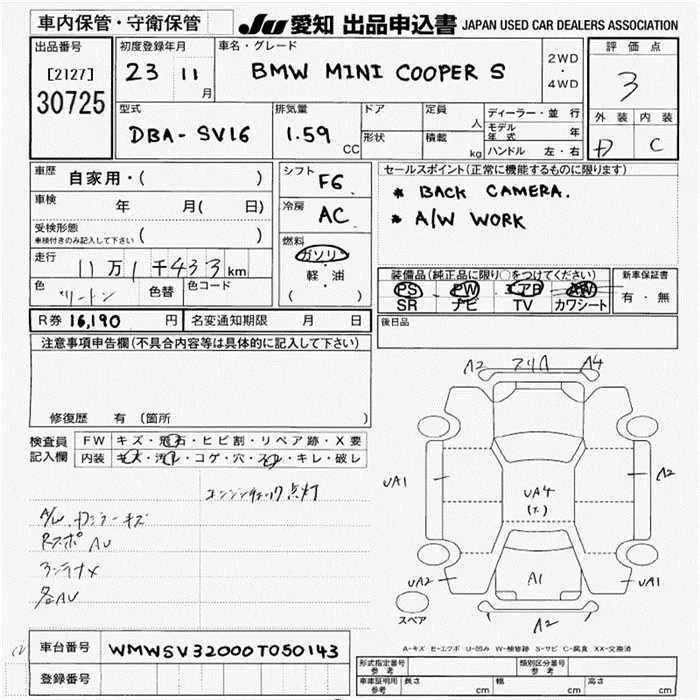 車内保管・守衛保管
JU 愛知 出品申込書 JAPAN USED CAR DEALERS ASSOCIATION
出品番号
[2127]
30725
初度登録年月
23 11 月
車名・グレード
BMW MINI COOPER S
2WD
・
4WD
評価点
3
外装 内装
D C
型式
DBA-SV16
排気量
1.59 CC
ドア
形状
定員 人
積載 kg
ディーラー・並行
モデル年式 年
ハンドル 左・右
車歴 自家用・( )
車検 年 月( 日)
受検形態
車検付きのみ記入して下さい ( )
走行 11万1千433km
色 ツートン 色替 色コード
シフト F6
冷房 AC
燃料
ガソリン
軽・油
( )
セールスポイント(正常に機能するものに限ります)
* BACK CAMERA.
* A/W WORK
装備品(純正品に限り○をつけてください)
PS PW エアB AW
SR ナビ TV カワシート
新車保証書
有・無
R券 16,190 円 名変通知期限 月 日
後日品
注意事項申告欄(不具合内容等は具体的に記入して下さい)
修復歴 有(箇所 )
検査員
記入欄
FW キズ・飛石・ヒビ割・リペア跡・X要
内装 キズ・汚れ・コゲ・穴・スレ・キレ・破レ
エンジンチェック点灯
A/W センターキズ
Rスポ AU
ランプナメ
各AU
A2 アリA A4
UA1
A2
UA4
A1
UA2
UA1
A2
スペア
A-キズ E-エクボ U-凹み W-補修跡 S-サビ C-腐食 XX-交換済
車台番号 WMWSV32000T050143
登録番号
形式指定番号
参考
類別区分番号
参考
車庫証明用
参考
長さ cm 幅 cm 高さ cm